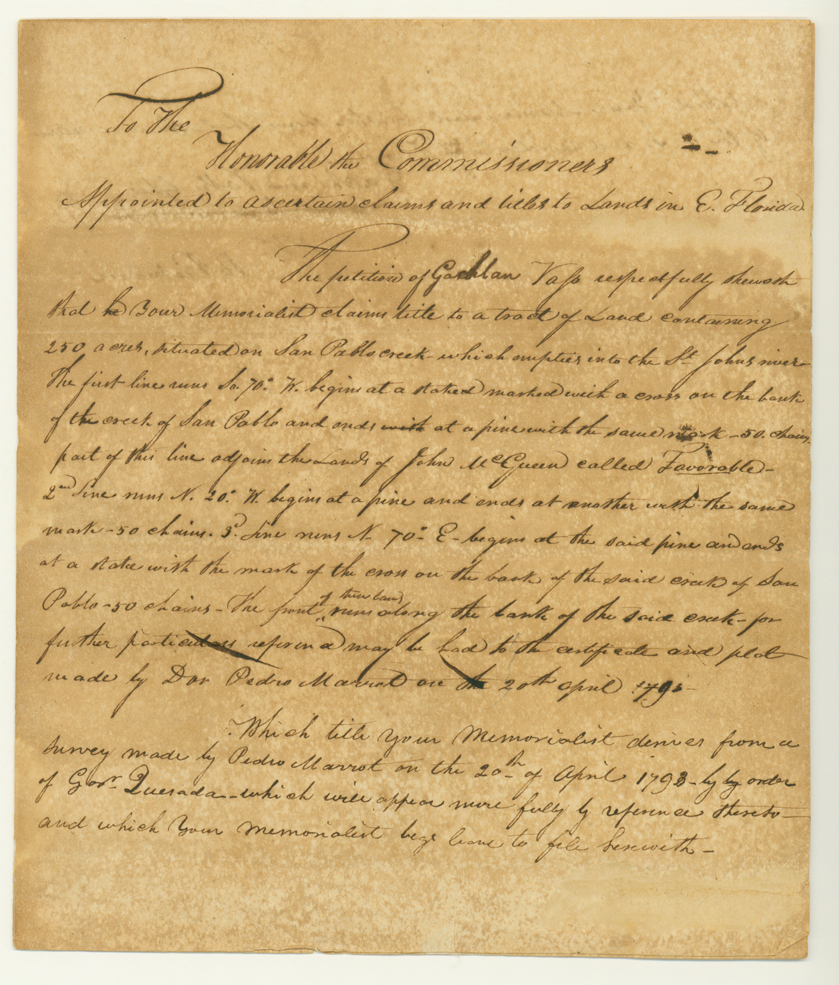 To The
Honorable the Commissioners
Appointed to ascertain claims and titles to Lands in E. Florida
The petition of Gachlan Vass respectfully sheweth
that he Your Memorialist claims title to a tract of Land containing
250 acres, situated on San Pablo creek which empties into the St. Johns river
The first line runs So. 70° W. begins at a staked marked with a cross on the bank
of the creek of San Pablo and ends with at a pine with the same mark - 50 chains,
part of this line adjoins the Lands of John McQueen called Favorable -
2nd line runs N. 20° W. begins at a pine and ends at another with the same
mark - 50 chains. 3d. line runs N 70° E - begins at the said pine and ends
at a stake with the mark of the cross on the bank of the said creek of San
Pablo - 50 chains - The front of this land runs along the bank of the said creek - for
further particulars reference may be had to the certificate and plat
made by Don Pedro Marrot on the 20th april 179
Which title Your Memorialist derives from a
survey made by Pedro Marrot on the 20th of April 1793 - by by order
of Govr. Quesada - which will appear more fully by reference thereto -
and which Your Memorialist begs leave to file herewith -